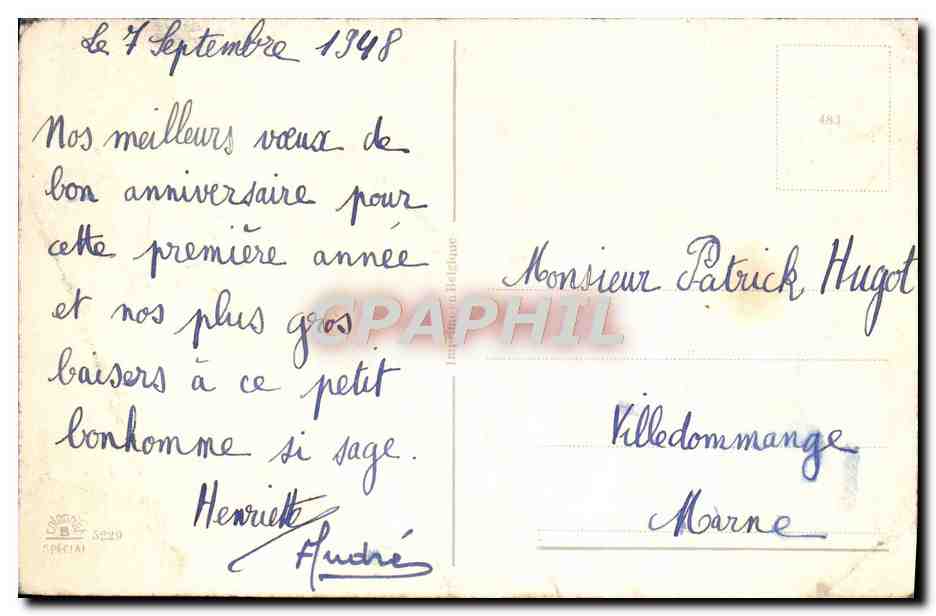 Le 7 Septembre 1948
Nos meilleurs vœux de
bon anniversaire pour
cette première année
et nos plus gros
baisers à ce petit
bonhomme si sage.
Henriette
André
COLOPRINT
B
SPÉCIAL 5229
Imprimé en Belgique
CPAPHIL
483
Monsieur Patrick Hugot
Villedommange
Marne